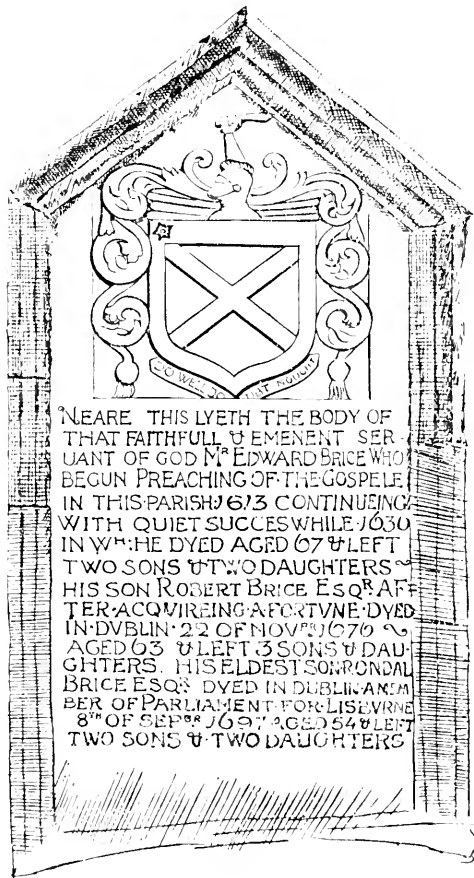 DO WELL DOUBT NOUGHT
NEARE THIS LYETH THE BODY OF
THAT FAITHFULL & EMENENT SER-
UANT OF GOD MR EDWARD BRICE WHO
BEGUN PREACHING OF THE GOSPELE
IN THIS PARISH 1613 CONTINUEING
WITH QUIET SUCCES WHILE 1630
IN WH: HE DYED AGED 67 & LEFT
TWO SONS & TWO DAUGHTERS ~
HIS SON ROBERT BRICE ESQR AF-
TER·ACQUIREING·A·FORTVNE·DYED
IN·DVBLIN·22 OF NOVBR 1676 ~
AGED 63 & LEFT 3 SONS & DAU-
GHTERS. HIS ELDEST SON·RONDAL
BRICE ESQR DYED IN DUBLIN·A MEM
BER OF PARLIAMENT·FOR·LISBVRNE
8TH OF SEPBR 1697 AGED 54 & LEFT
TWO SONS & TWO DAUGHTERS